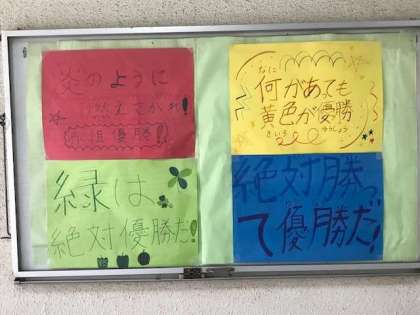 炎のように
燃えさかれ!
赤組優勝!
なに
何があっても
黄色が優勝
きいろ ゆうしょう
緑は
絶対優勝だ!
絶対勝っ
て優勝だ!